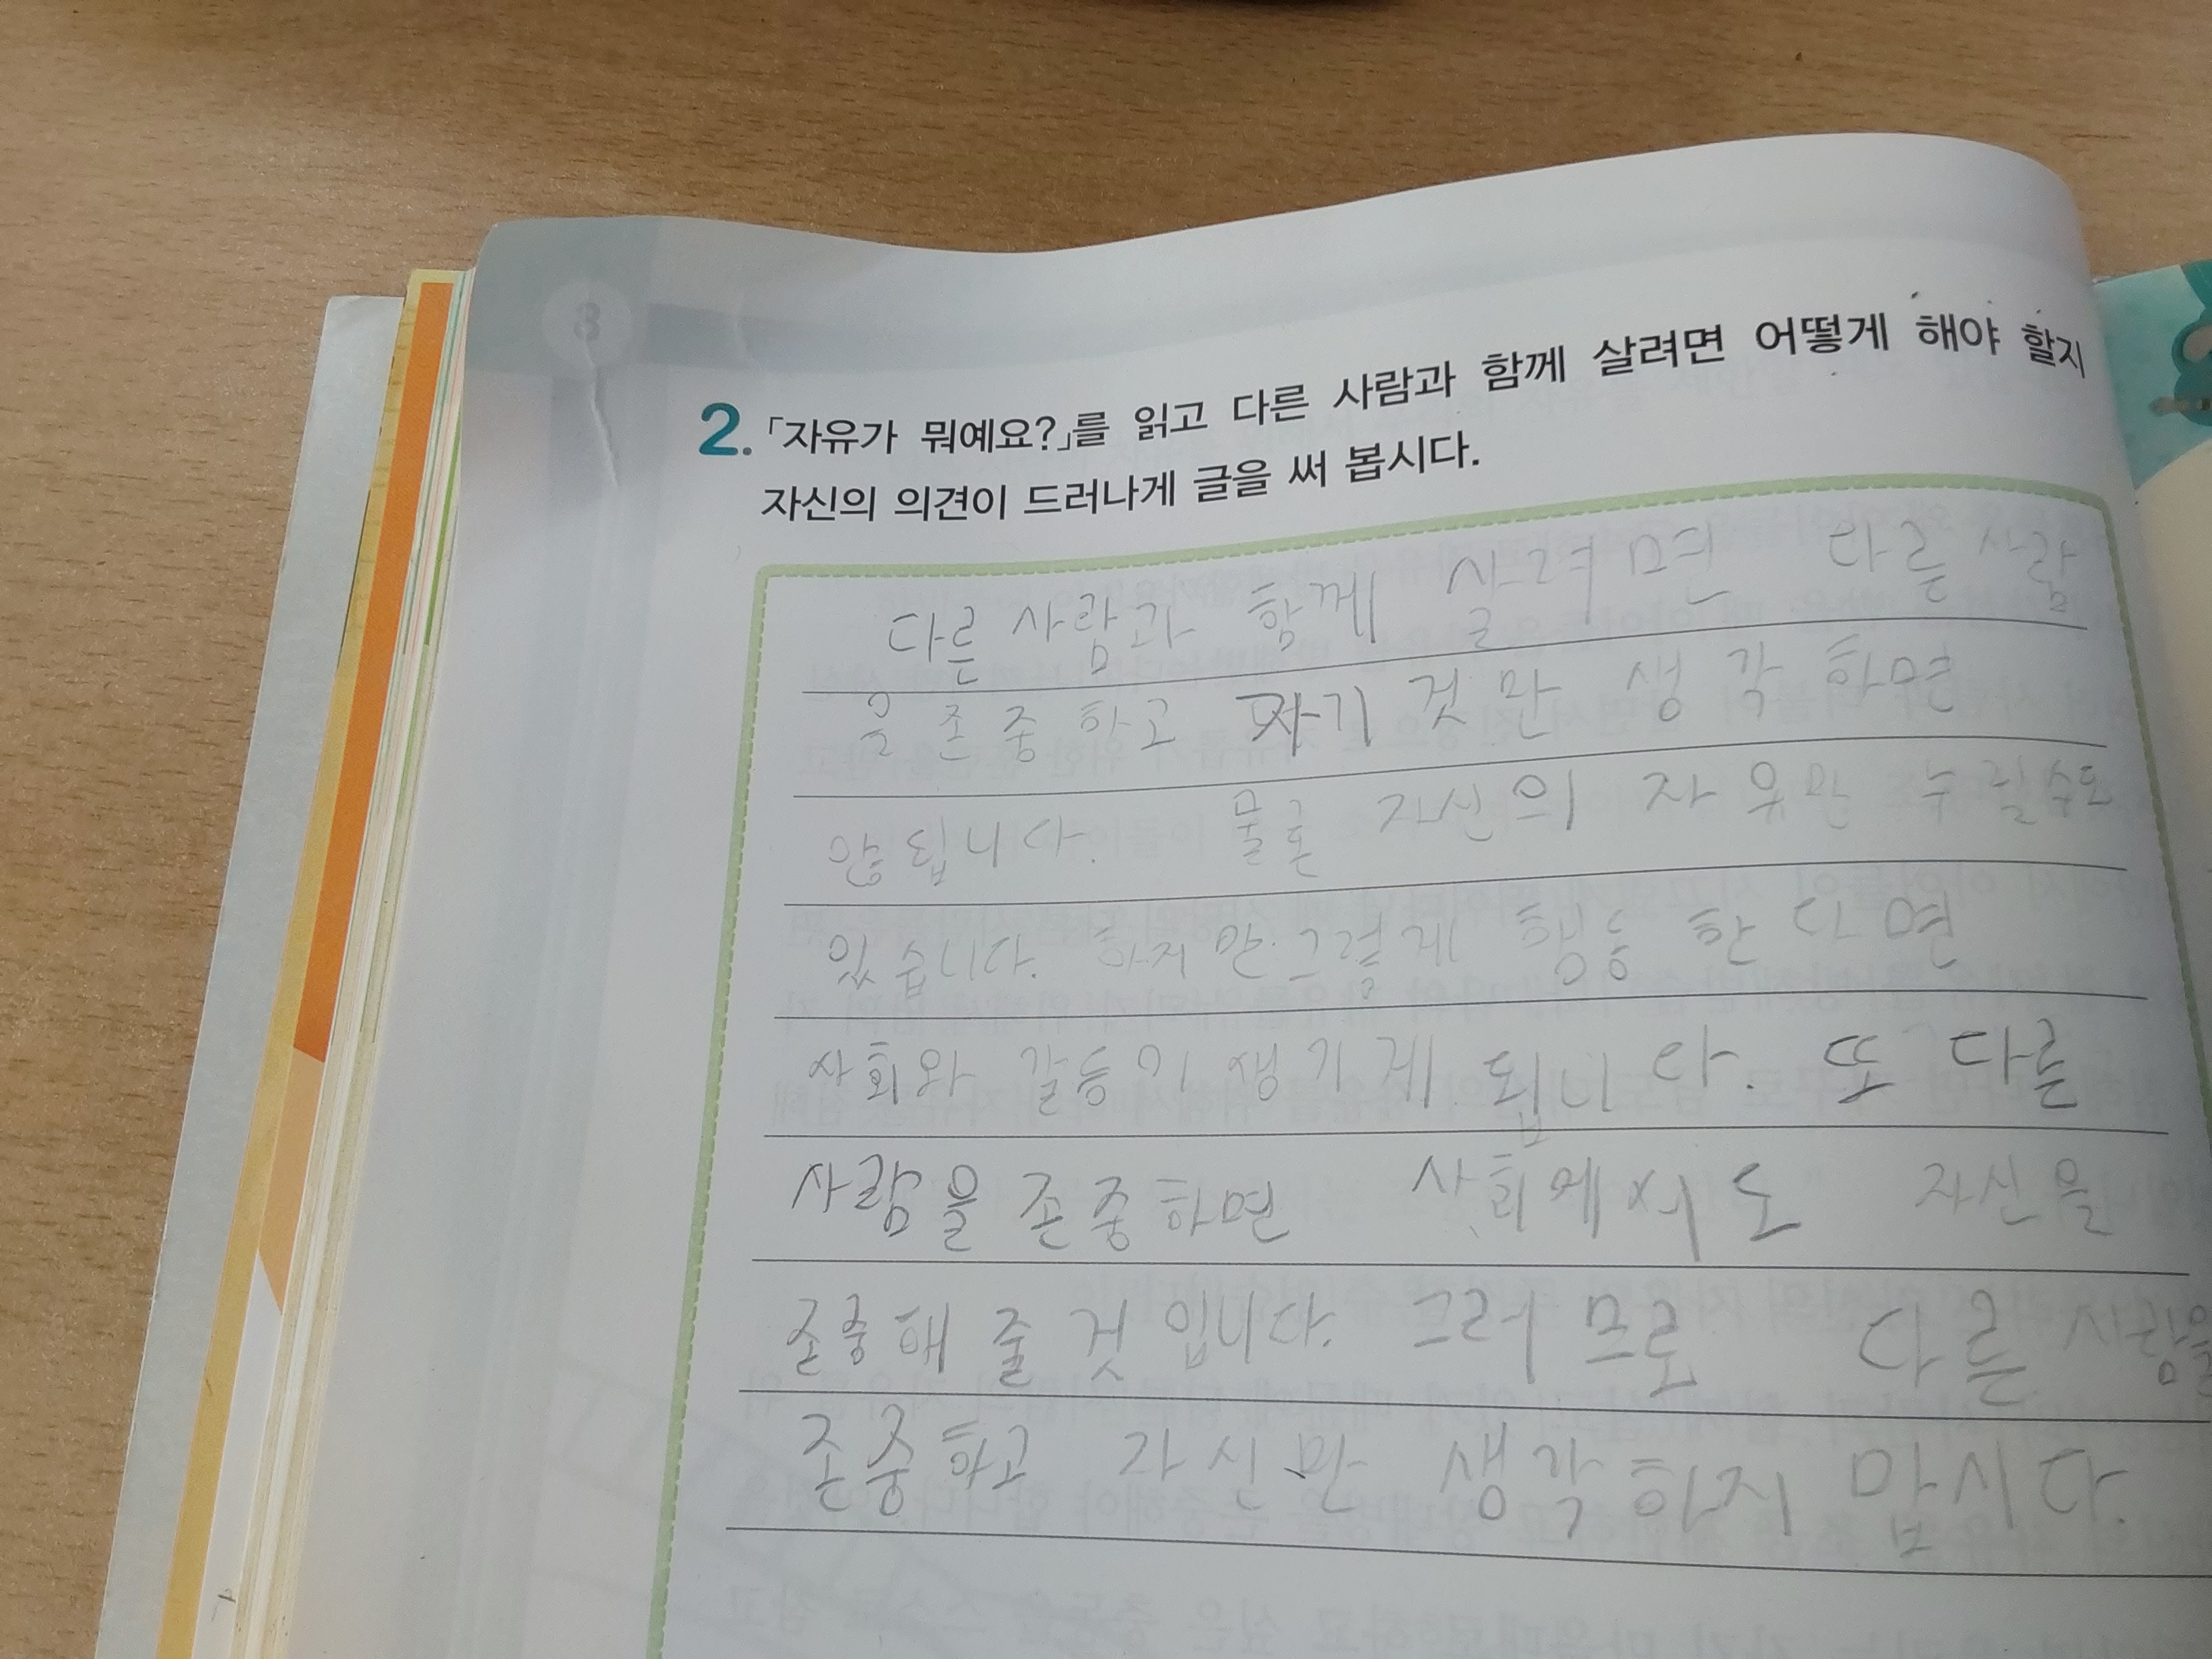 2. 「자유가 뭐예요?」를 읽고 다른 사람과 함께 살려면 어떻게 해야 할지
자신의 의견이 드러나게 글을 써 봅시다.
다른 사람과 함께 살려면 다른 사람
을 존중하고 자기 것만 생각하면
않됩니다. 물론 자신의 자유만 누릴수도
있습니다. 하지만 그렇게 행동한다면
사회와 갈등이 생기게 됩니다. 또 다른
사람을 존중하면 사회에서도 자신을
존중해 줄것입니다. 그러므로 다른 사람을
존중하고 자신만 생각하지 맙시다.